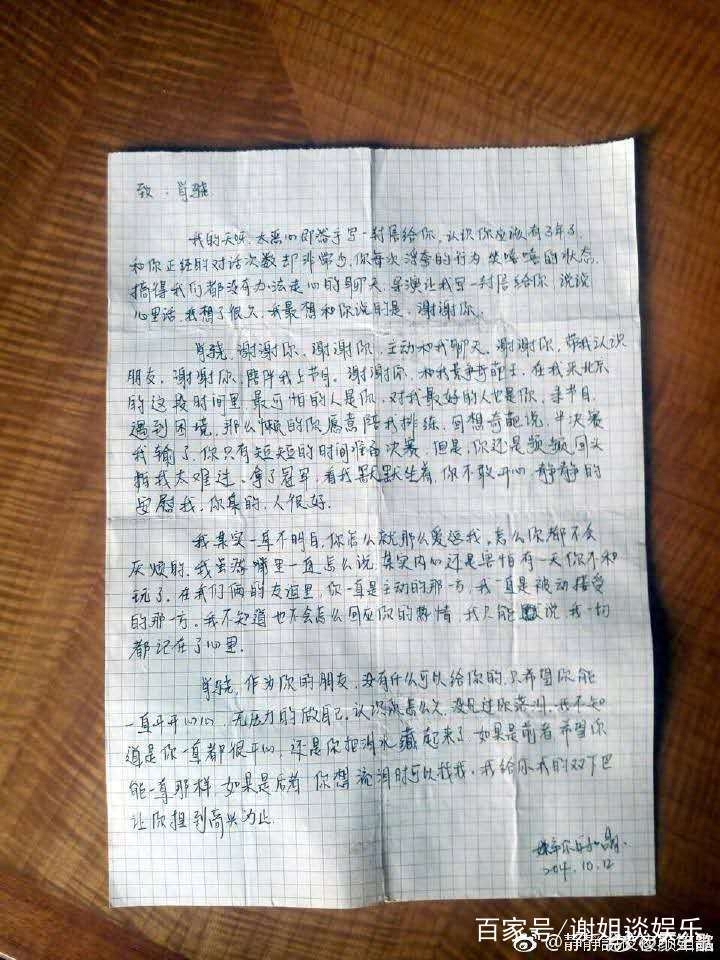 致：肖骁
我的天呀，太恶心即将手写一封信给你，认识你应该有3年了
和你正经的对话次数却非常少，你每次浮夸的行为笑嘻嘻的状态，
搞得我们都没有办法走心的聊天，导演让我写一封信给你，说说
心里话，我想了很久，我最想和你说的是，谢谢你。
肖骁，谢谢你，谢谢你，主动和我聊天，谢谢你，带我认识
朋友，谢谢你，陪伴我上节目，谢谢你，和我在来北京
的这段时间里，最可怕的人是你，对我最好的人也是你，录节目
遇到困境，那么懒的你愿意陪我排练，回想奇葩说，半决赛
我输了，你只有短短的时间准备决赛，但是，你还是频频回头
怕我太难过，拿了冠军，看我默默坐着，你不敢开心，静静的
安慰我，你真的，人很好。
我其实一直不明白，你怎么就那么爱逗我，怎么你都不会
厌烦的，我虽然嘴里一直怎么说，其实内心还是害怕有一天你不和
玩了，在我们俩的友谊里，你一直是主动的那一方，我一直是被动接受
的那一方，我不知道也不会怎么回应你的热情，我只能默说，我一切
都记在了心里。
肖骁，作为你的朋友，没有什么可以给你的，只希望你能
一直开开心心，无压力的做自己，认识你怎么久，没见过你落泪，我不知
道是你一直都很开心，还是你把泪水藏起来了，如果是前者，希望你
能一直那样，如果是后者，你想流泪时可以找我，我给你我的双下巴
让你捏到高兴为止。
2014.10.12
百家号/谢姐谈娱乐